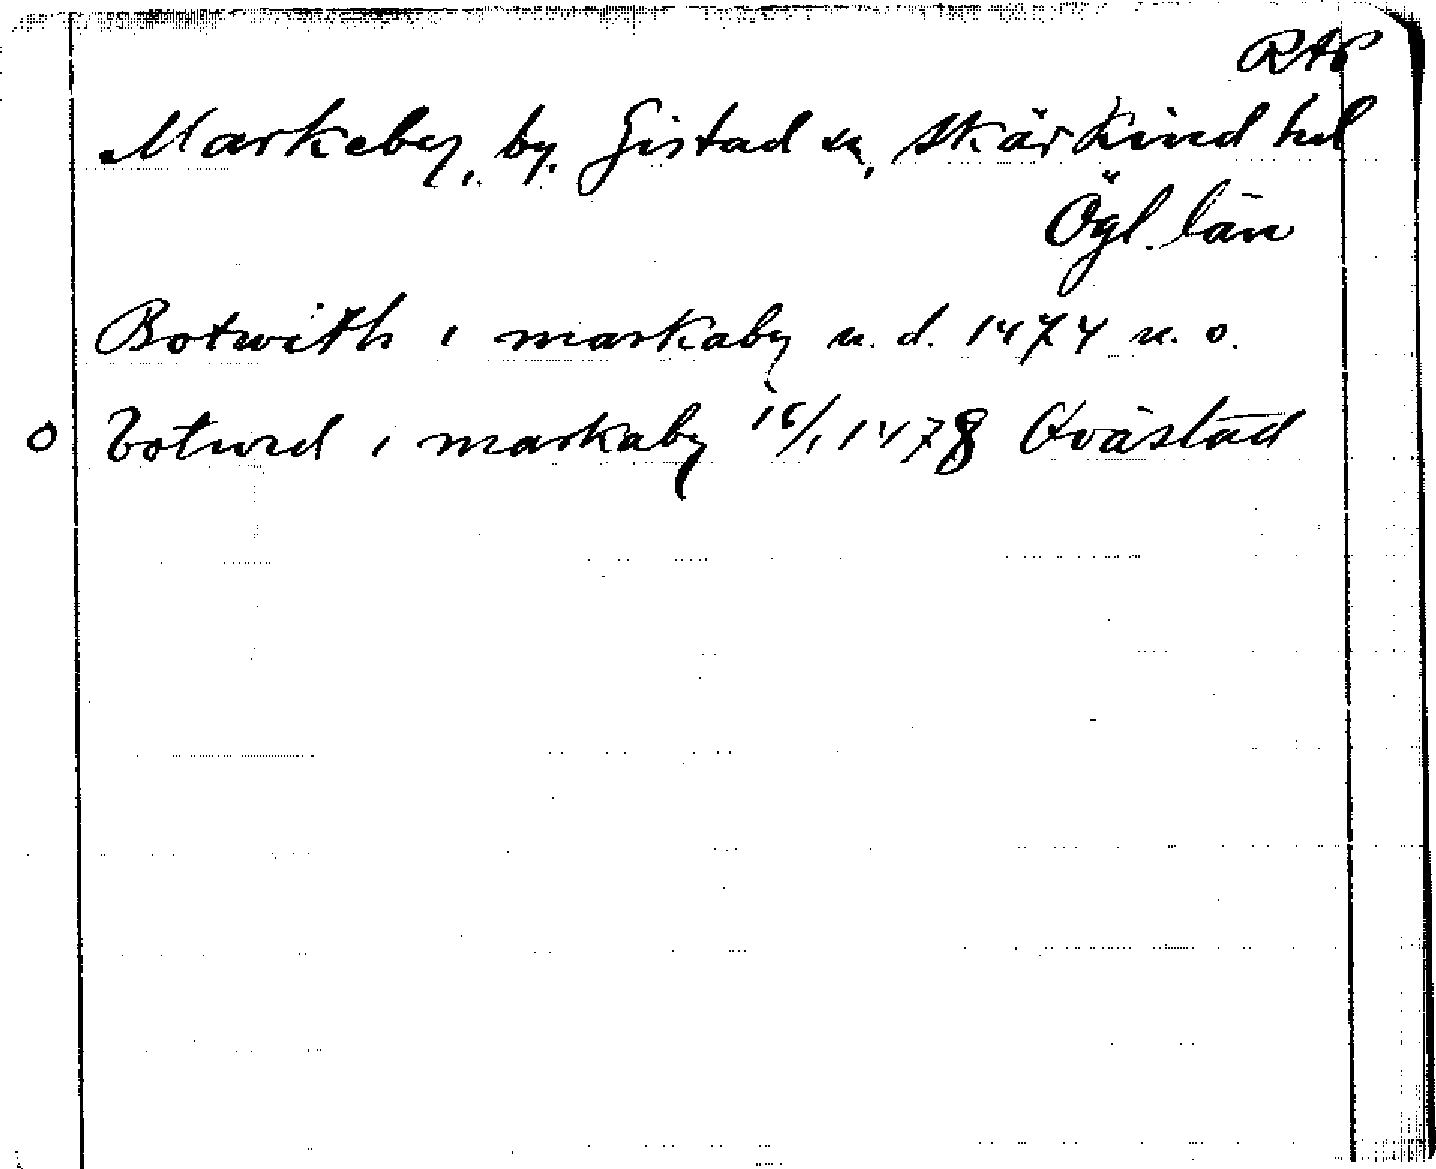 RAP
Markeby, by, Gistad sn, Skärkind hd
Ögl. län
Botwith i markaby u. d. 1474 u. o.
o botwid i markaby 15/1 1478 Qvästad